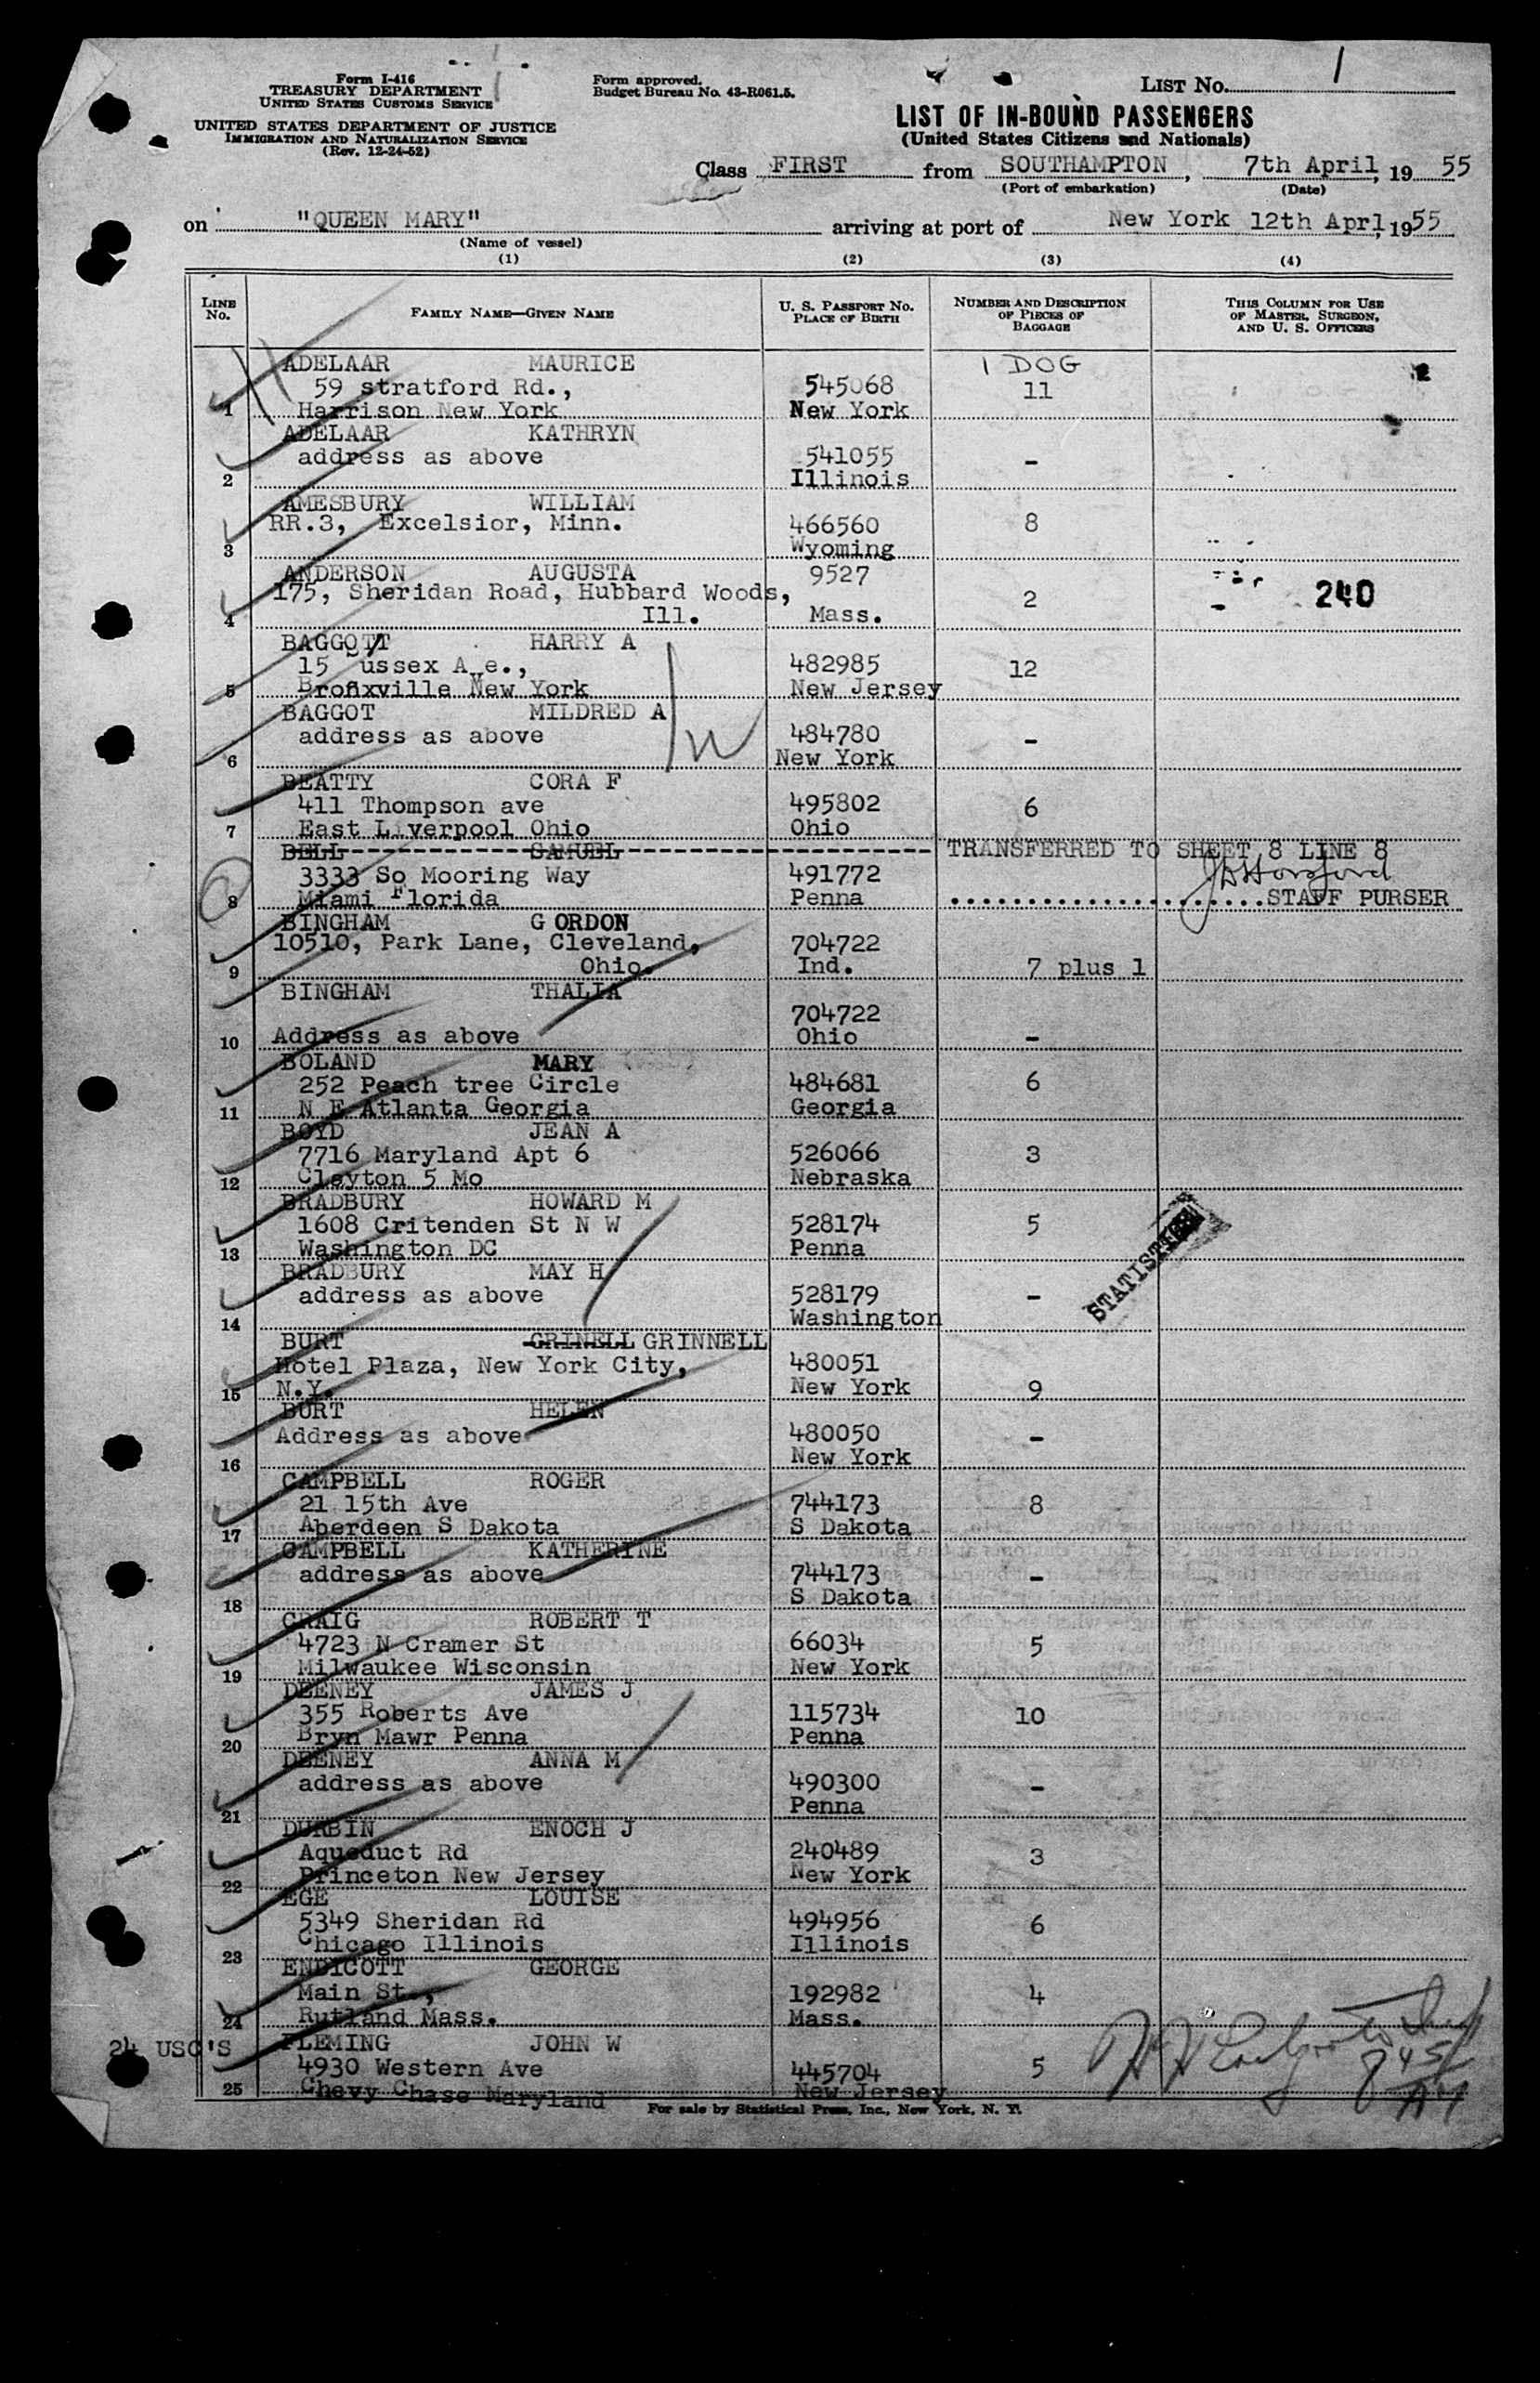 Form I-416
TREASURY DEPARTMENT
UNITED STATES CUSTOMS SERVICE
UNITED STATES DEPARTMENT OF JUSTICE
IMMIGRATION AND NATURALIZATION SERVICE
(Rev. 12-24-52)
Form approved.
Budget Bureau No. 43-R061.5.
LIST No. 1
LIST OF IN-BOUND PASSENGERS
(United States Citizens and Nationals)
Class FIRST from SOUTHAMPTON, 7th April, 19 55
(Port of embarkation) (Date)
on "QUEEN MARY" arriving at port of New York 12th Aprl, 1955
(Name of vessel)
(1) (2) (3) (4)
LINE No. FAMILY NAME—GIVEN NAME U. S. PASSPORT No. PLACE OF BIRTH NUMBER AND DESCRIPTION OF PIECES OF BAGGAGE THIS COLUMN FOR USE OF MASTER, SURGEON, AND U. S. OFFICERS
ADELAAR MAURICE 1 DOG
59 stratford Rd., 545068 11
1 Harrison New York New York
ADELAAR KATHRYN
address as above 541055 -
2 Illinois
AMESBURY WILLIAM
RR.3, Excelsior, Minn. 466560 8
3 Wyoming
ANDERSON AUGUSTA 9527
175, Sheridan Road, Hubbard Woods, 2 240
4 Ill. Mass.
BAGGOTT HARRY A
15 ussex A e., 482985 12
5 Bronxville New York New Jersey
BAGGOT MILDRED A
address as above 484780 -
6 New York
W
BEATTY CORA F
411 Thompson ave 495802 6
7 East Liverpool Ohio Ohio
BELL SAMUEL TRANSFERRED TO SHEET 8 LINE 8
3333 So Mooring Way 491772
8 Miami Florida Penna STAFF PURSER
BINGHAM G ORDON
10510, Park Lane, Cleveland, 704722
9 Ohio. Ind. 7 plus 1
BINGHAM THALIA
704722
10 Address as above Ohio -
BOLAND MARY
252 Peach tree Circle 484681 6
11 N E Atlanta Georgia Georgia
BOYD JEAN A
7716 Maryland Apt 6 526066 3
12 Clayton 5 Mo Nebraska
BRADBURY HOWARD M
1608 Critenden St N W 528174 5
13 Washington DC Penna
BRADBURY MAY H
address as above 528179 -
14 Washington
STATISTICS
BURT GRINELL GRINNELL
Hotel Plaza, New York City, 480051
15 N.Y. New York 9
BURT HELEN
Address as above 480050 -
16 New York
CAMPBELL ROGER
21 15th Ave 744173 8
17 Aberdeen S Dakota S Dakota
CAMPBELL KATHERINE
address as above 744173 -
18 S Dakota
CRAIG ROBERT T
4723 N Cramer St 66034 5
19 Milwaukee Wisconsin New York
DEENEY JAMES J
355 Roberts Ave 115734 10
20 Bryn Mawr Penna Penna
DEENEY ANNA M
address as above 490300 -
21 Penna
DURBIN ENOCH J
Aqueduct Rd 240489 3
22 Princeton New Jersey New York
EGE LOUISE
5349 Sheridan Rd 494956 6
23 Chicago Illinois Illinois
ENDICOTT GEORGE
Main St., 192982 4
24 Rutland Mass. Mass.
24 USC'S FLEMING JOHN W
4930 Western Ave 445704 5
25 Chevy Chase Maryland New Jersey
For sale by Statistical Press, Inc., New York, N. Y.